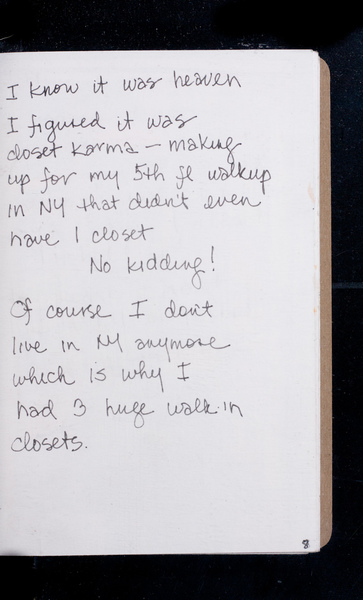 I know it was heaven
I figured it was
closet karma – making
up for my 5th fl walkup
in NY that didn't even
have 1 closet
No kidding!
Of course I don't
live in NY anymore
which is why I
had 3 huge walk-in
closets.
8